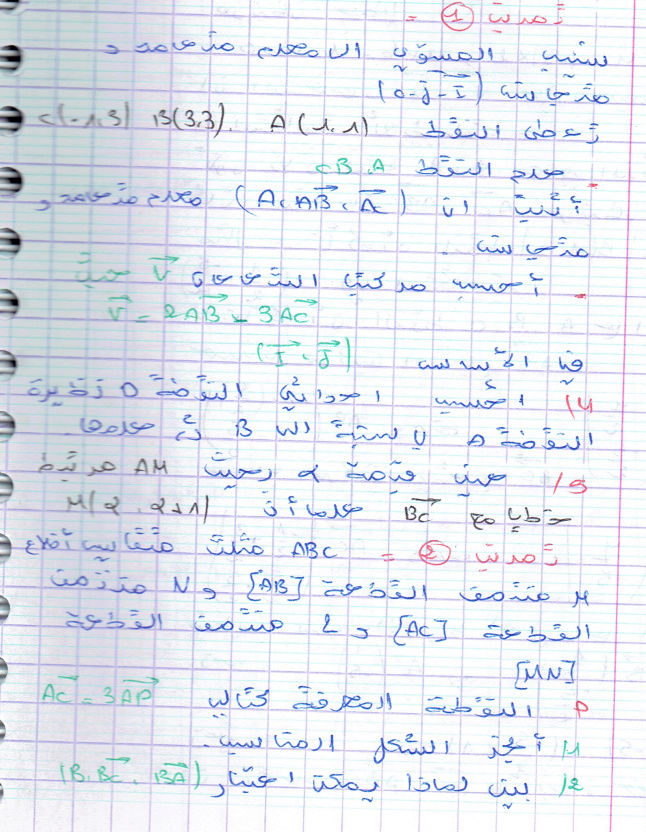 تمرين ① =
ننسب المستوي الى معلم متعامد و
متجانس (o-J-I)
نعطي النقط A(1,1) B(3,3). C(-1,3)
علم النقط A . B c
أثبت ان (A, AB, AC) معلم متعامد و
متجانس .
- أحسب مركبتي الشعاع V حيث
V = 2AB - 3AC
في الأساس (I , J)
4/ احسب احداثيي النقطة D نظيرة
النقطة A بالنسبة الى B ثم علمها
5/ عين قيمة α بحيث AM مرتبط
خطيا مع BC علما أن M(α , α+1)
تمرين ② = ABC مثلث متقايس أضلاع
M منتصف القطعة [AB] و N منتصف
القطعة [AC] و L منتصف القطعة
[MN]
P النقطة المعرفة كتالي AC = 3AP
1/ أنجز الشكل المناسب .
2/ بين لماذا يمكن اختيار (B, BC , BA)